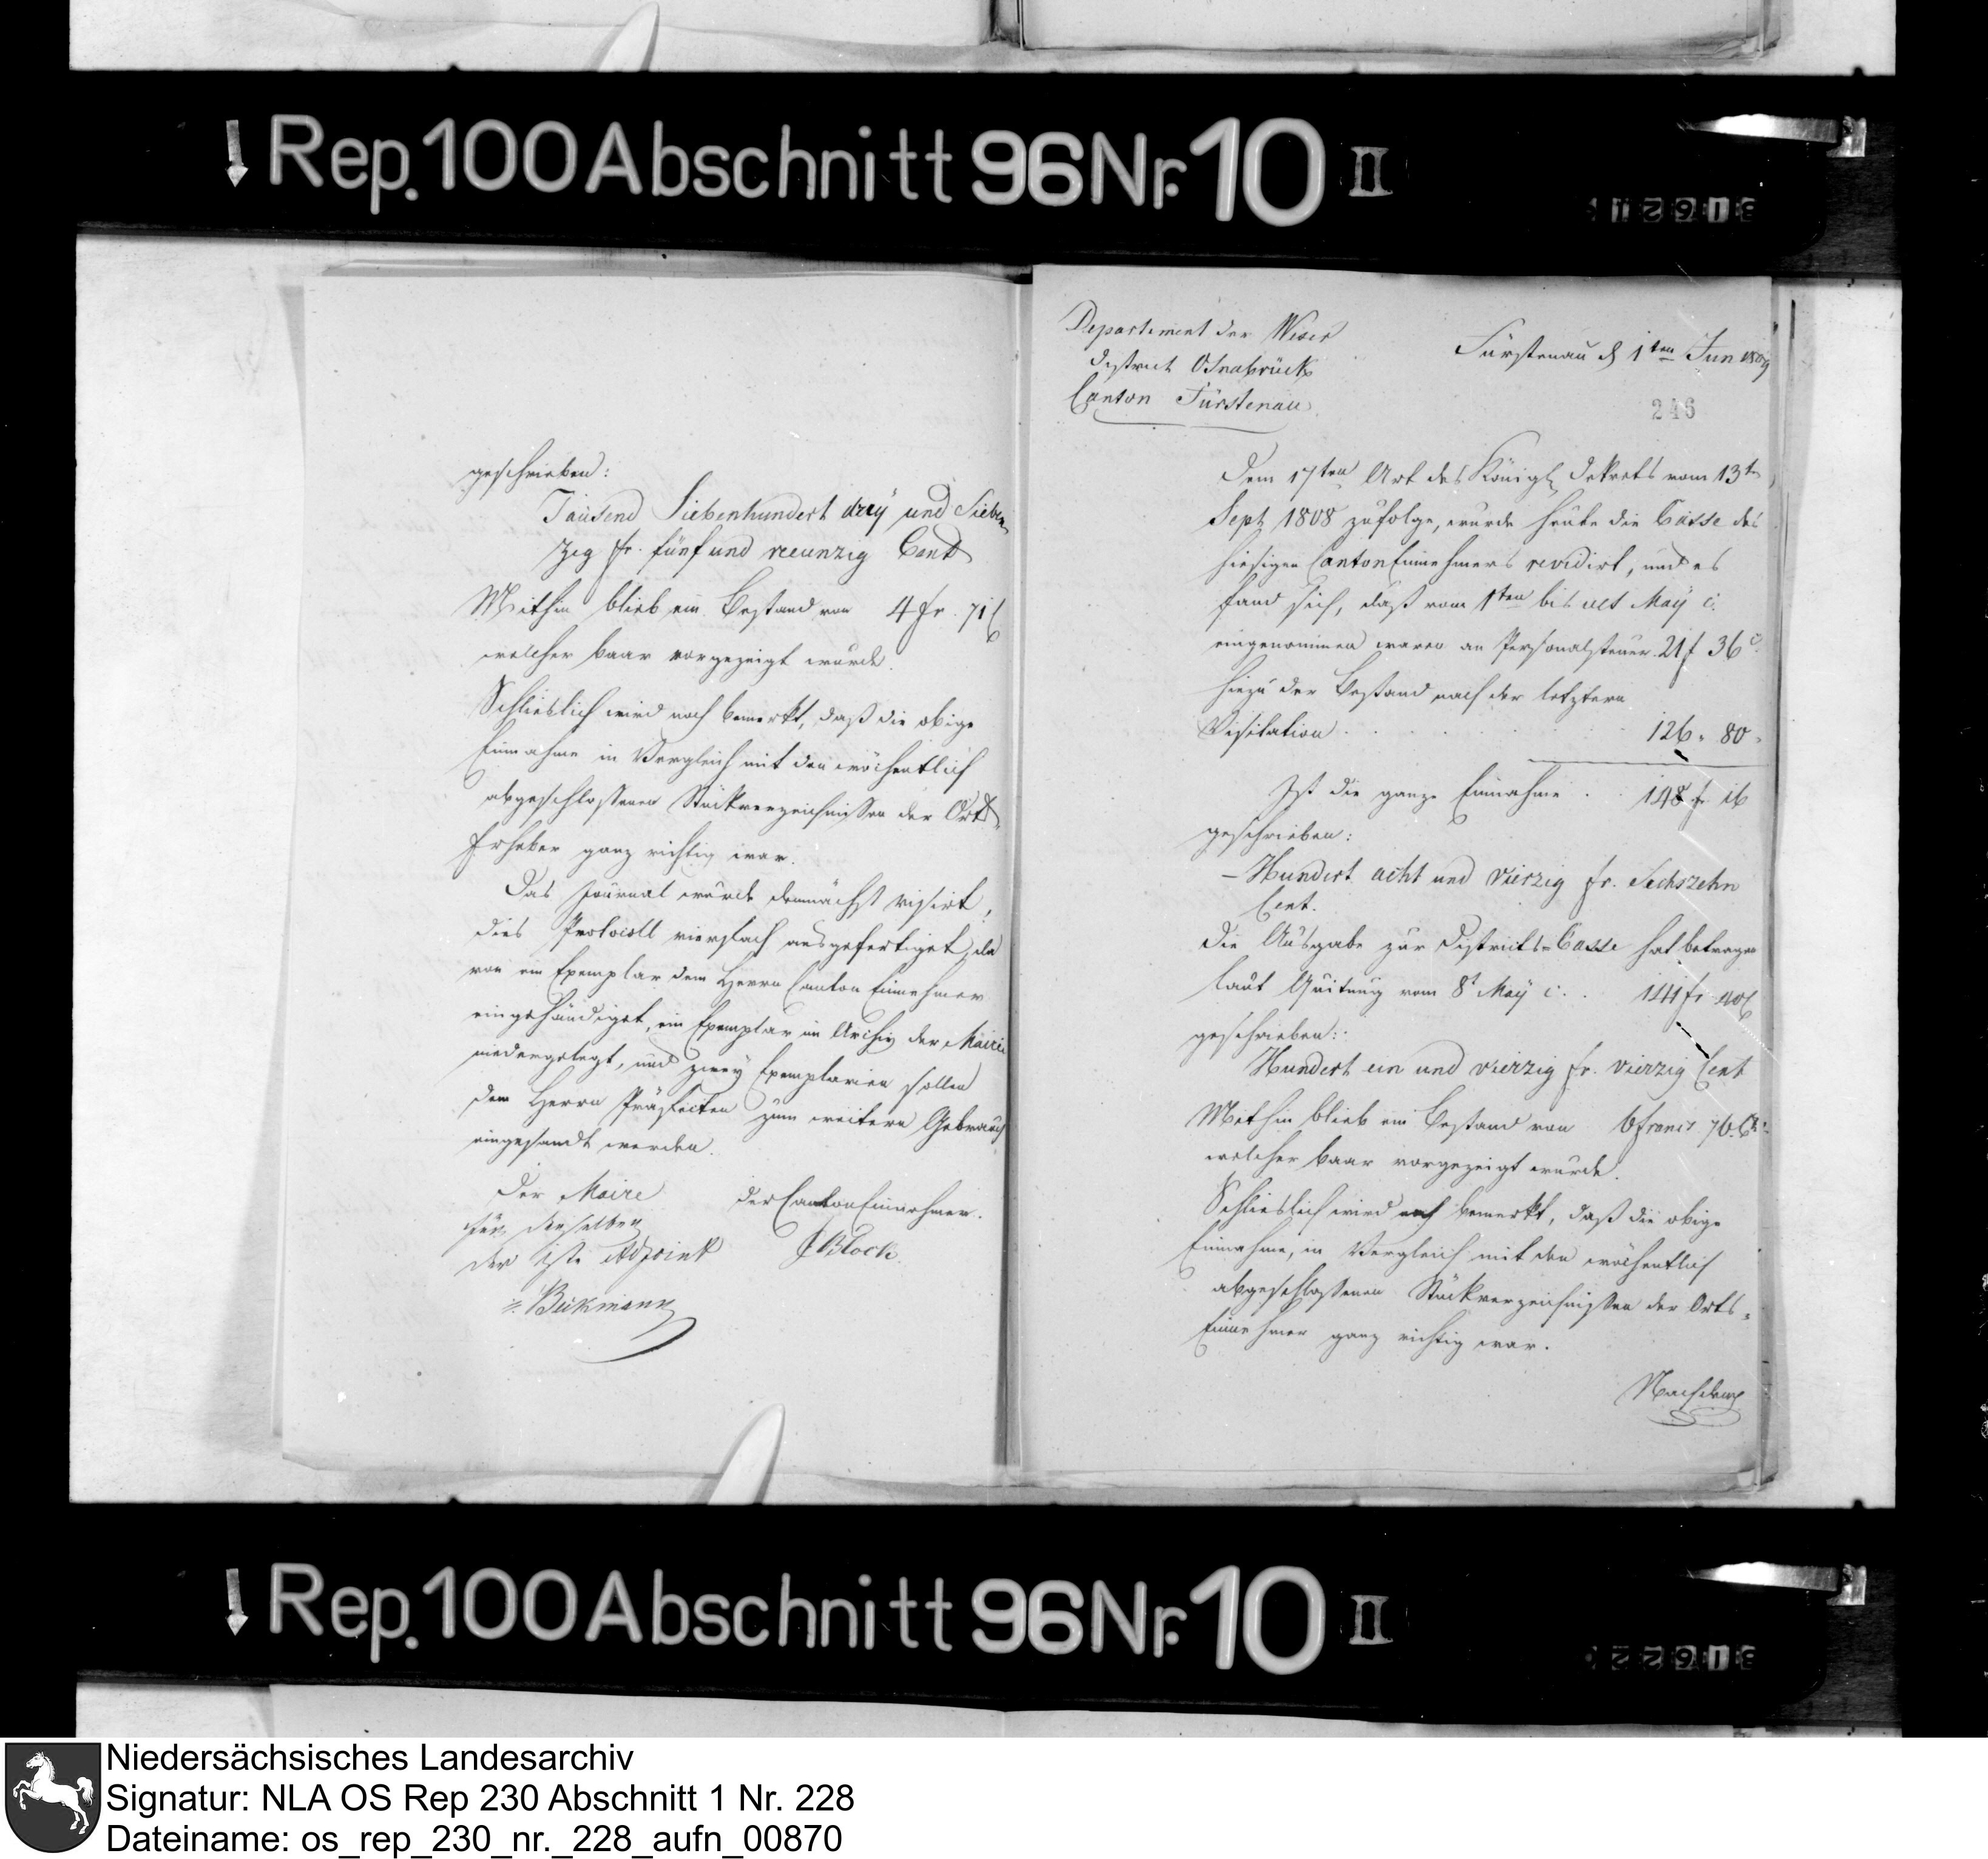 Rep. 100 Abschnitt 96 Nr. 10 II
geschrieben:
Tausend Siebenhundert drey und Sieben
zig fr. fünf und neunzig Cent
Mithin blieb ein Bestand von 4 fr. 71 C
welcher baar vorgezeigt wurde.
Schlieslich wird noch bemerkt, daß die obige
Einnahme in Vergleich mit den wöchentlich
abgeschlossenen Stückverzeichnissen der Orts
Erheber ganz richtig war.
Das Journal wurde demnächst visirt,
dies vierfach ausgefertiget, da
von ein Exemplar dem Herrn Canton Einnehmer
eingehändiget, ein Exemplar im Archiv der Mairie
niedergelegt, und zwey Exemplarien sollen
dem Herrn Präfecten zum weitern Gebrauch
eingesandt werden.
Der Maire
für denselben
der 1ste Adjoint
Beckmann
der Canton Einnehmer.
J Block
Departement der Weser
District Osnabrück
Canton Fürstenau
Fürstenau d 1ten Jun 1809
246
Dem 17ten Art des Königl Dekrets vom 13ten
Sept 1808 zufolge, wurde heute die Casse des
hiesigen Canton Einnehmers revidirt, und es
fand sich, daß vom 1ten bis ult May c.
eingenommen waren an Personalsteuer 21 f 36 c.
hiezu der Bestand nach der letztern
Visitation . . . . . . 126 " 80 "
Ist die ganze Einnahme . . 148 fr 16
geschrieben:
Hundert acht und vierzig fr. Sechszehn
Cent.
die Ausgabe zur Districts-Casse hat betragen
laut Quitung vom 8t May c. . 141 fr 40 C
geschrieben:
Hundert ein und vierzig fr. vierzig Cent
Mithin blieb ein Bestand von 6 francs 76 Ct
welcher baar vorgezeigt wurde.
Schlieslich wird noch bemerkt, daß die obige
Einnahme, in Vergleich mit den wöchentlich
abgeschlossenen Stückverzeichnissen der Orts-
Einnehmer ganz richtig war.
Rep. 100 Abschnitt 96 Nr. 10 II
Niedersächsisches Landesarchiv
Signatur: NLA OS Rep 230 Abschnitt 1 Nr. 228
Dateiname: os_rep_230_nr._228_aufn_00870